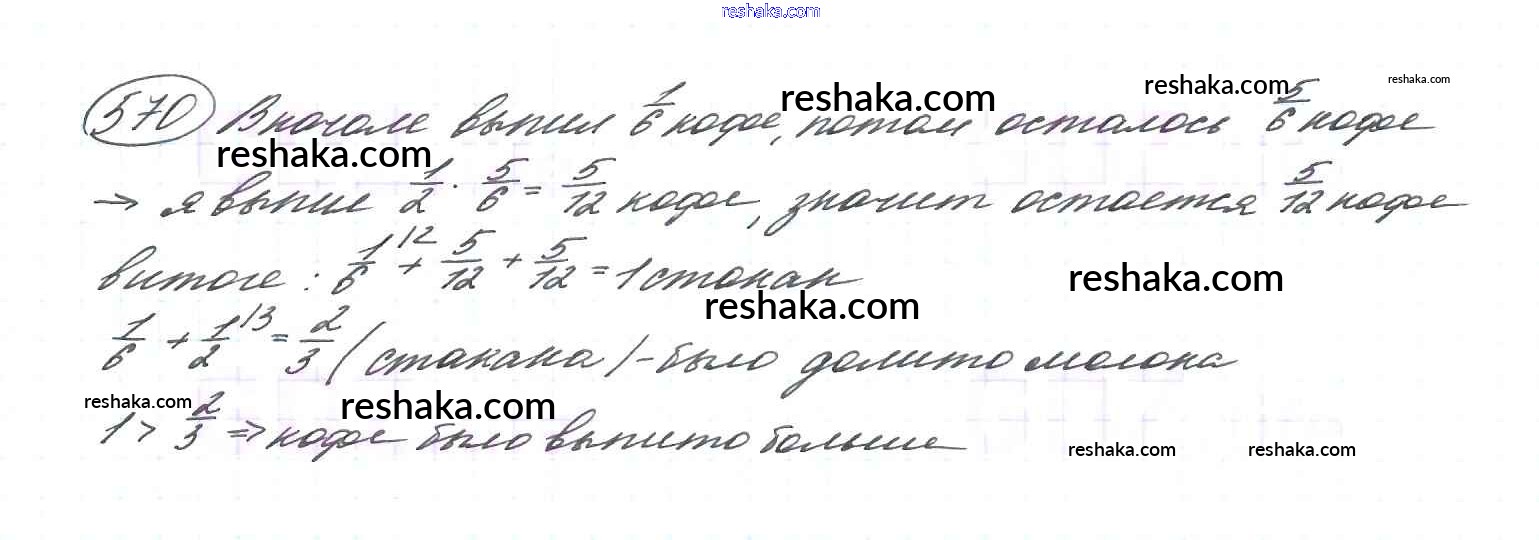 reshaka.com
570 Вначале выпил 1/6 кофе, потом осталось 5/6 кофе
reshaka.com reshaka.com reshaka.com
reshaka.com
→ я выпил 1/2 · 5/6 = 5/12 кофе, значит остается 5/12 кофе
в итоге : 1/6 + 5/12 + 5/12 = 1 стакан
reshaka.com reshaka.com
1/6 + 1/2 \3 = 2/3 (стакана) - было долито молока
reshaka.com reshaka.com
1 > 2/3 ⇒ кофе было выпито больше
reshaka.com reshaka.com